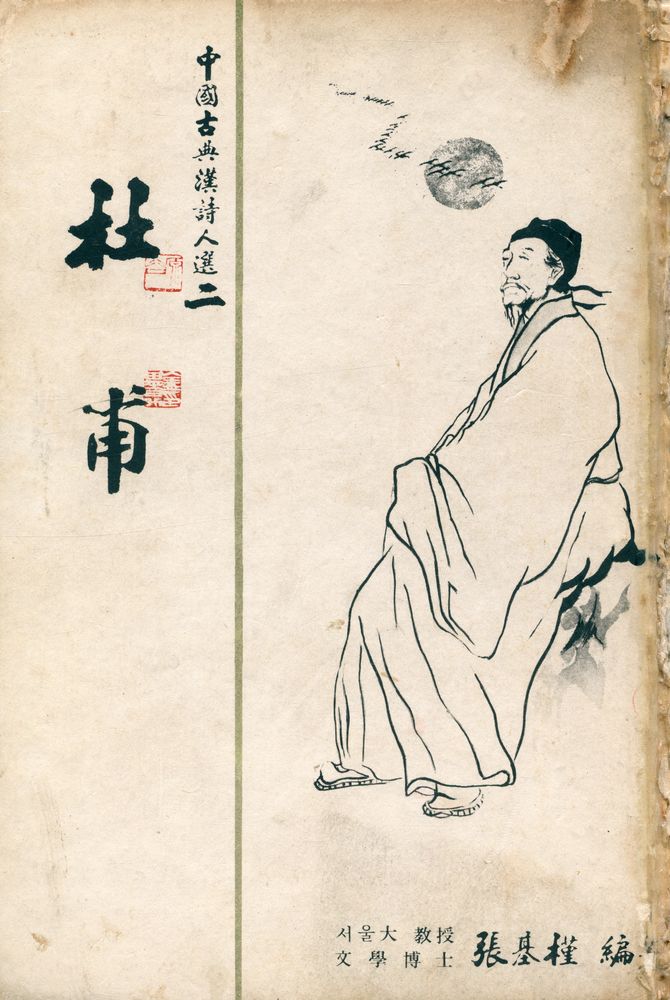 中國古典漢詩人選 二
杜甫
서울大 教授
文學博士
張基槿 編